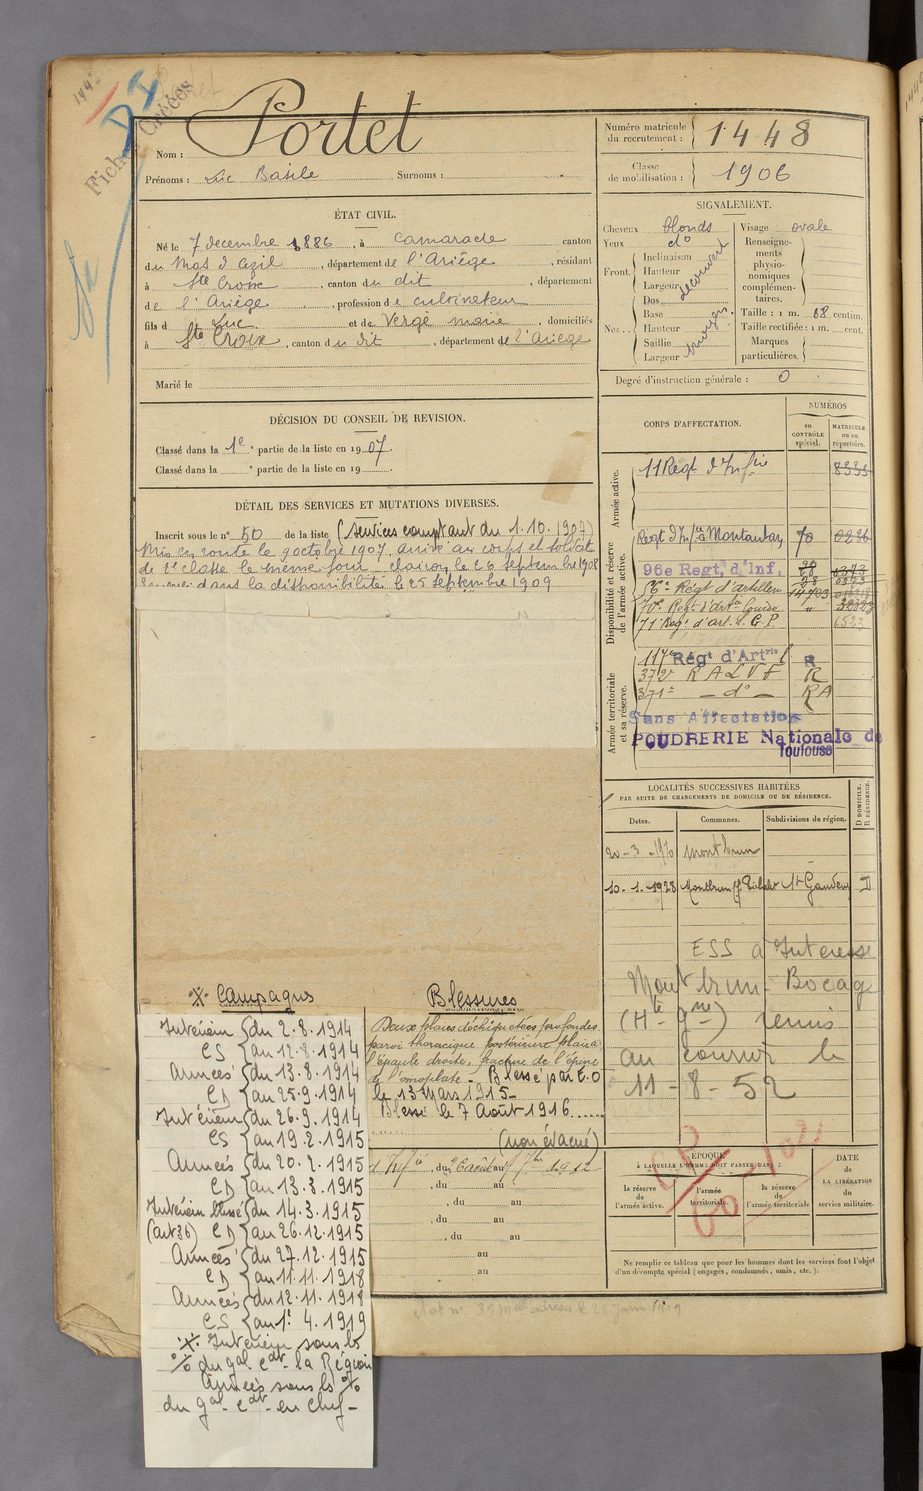 1448
D I
Fiches Croisées
Nom : Portet
Prénoms : Luc Basile Surnoms :
ÉTAT CIVIL.
Né le 7 décembre 1886, à Camarade canton
du Mas d'Azil, département de l'Ariège, résidant
à Ste Croix, canton du dit, département
de l'Ariège, profession de cultivateur
fils de Luc et de Vergé Marie, domiciliés
à Ste Croix, canton du dit, département de l'Ariège
Marié le
DÉCISION DU CONSEIL DE REVISION.
Classé dans la 1e partie de la liste en 1907.
Classé dans la partie de la liste en 19
DÉTAIL DES SERVICES ET MUTATIONS DIVERSES.
Inscrit sous le n° 50 de la liste (services comptant du 1.10.1907)
Mis en route le 9 octobre 1907, arrivé au corps et soldat
de 2e classe le même jour. clairon le 26 septembre 1908
dans la disponibilité le 25 septembre 1909
Numéro matricule du recrutement : 1448
Classe de mobilisation : 1906
SIGNALEMENT.
Cheveux blonds
Yeux do
Front. Inclinaison
Hauteur
Largeur
découvert
Nez. Dos
Base
Hauteur
Saillie
Largeur
moyen
Visage ovale
Renseignements physionomiques complémentaires.
Taille : 1 m. 68 centim.
Taille rectifiée : 1 m. cent.
Marques particulières.
Degré d'instruction générale : 0
CORPS D'AFFECTATION.
NUMÉROS
au CONTRÔLE spécial.
MATRICULE ou au répertoire.
Armée active.
11 Régt d'Infie 8335
Disponibilité et réserve de l'armée active.
Régt d'Infie à Montauban 70
96e Regt. d'Inf.
56e Régt d'artillerie 14703
70e Régt d'Artie Lourde "
71 Régt d'art. à G.P.
Armée territoriale et sa réserve.
117e Régt d'Artrie l R
372e R A L V F R
371e — do — RA
Sans Affectation
POUDRERIE Nationale de
Toulouse
LOCALITÉS SUCCESSIVES HABITÉES
PAR SUITE DE CHANGEMENTS DE DOMICILE OU DE RÉSIDENCE.
Dates. Communes. Subdivisions de région. D DOMICILE. R RÉSIDENCE.
Montbrun
10-1-1928 Montbrun St Gaudens D
ESS à Interesse
Montbrun-Bocage
(Hte Gne) remis
au courrier le
11-8-52
ÉPOQUE
À LAQUELLE L'HOMME DOIT PASSER DANS :
la réserve de l'armée active.
l'armée territoriale.
la réserve de l'armée territoriale
DATE
de
LA LIBÉRATION
du
service militaire.
Ne remplir ce tableau que pour les hommes dont les services font l'objet
d'un décompte spécial (engagés, condamnés, omis, etc.).
※ Campagnes
Intérieur du 2.8.1914
CS au 12.8.1914
Armées du 13.8.1914
CD au 25.9.1914
Intérieur du 26.9.1914
CS au 19.2.1915
Armées du 20.2.1915
CD au 13.3.1915
Intérieur blessé du 14.3.1915
(art 36) CD au 26.12.1915
Armées du 27.12.1915
CD au 11.11.1918
Armées du 12.11.1918
CS au 1er 4.1919
※ Intérieur sous les
% du gal cdt la Région
Armées sous les %
du gal cdt en chef -
Blessures
Deux plaies déchiquetées profondes
paroi thoracique postérieure plaie à
l'épaule droite, fracture de l'épine
de l'omoplate - Blessé par E.O
le 13 mars 1915 -
Blessé le 7 Août 1916
(non évacué)
, du au
, du au
, du au
, du au
au
au